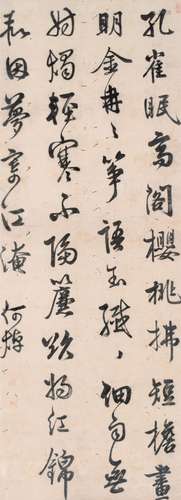 孔雀眠高閣櫻桃拂短檐畫
明金冉〻箏語玉纖〻細雨無
妨燭輕寒不隔簾欲將紅錦
段因夢寄江淹 何焯